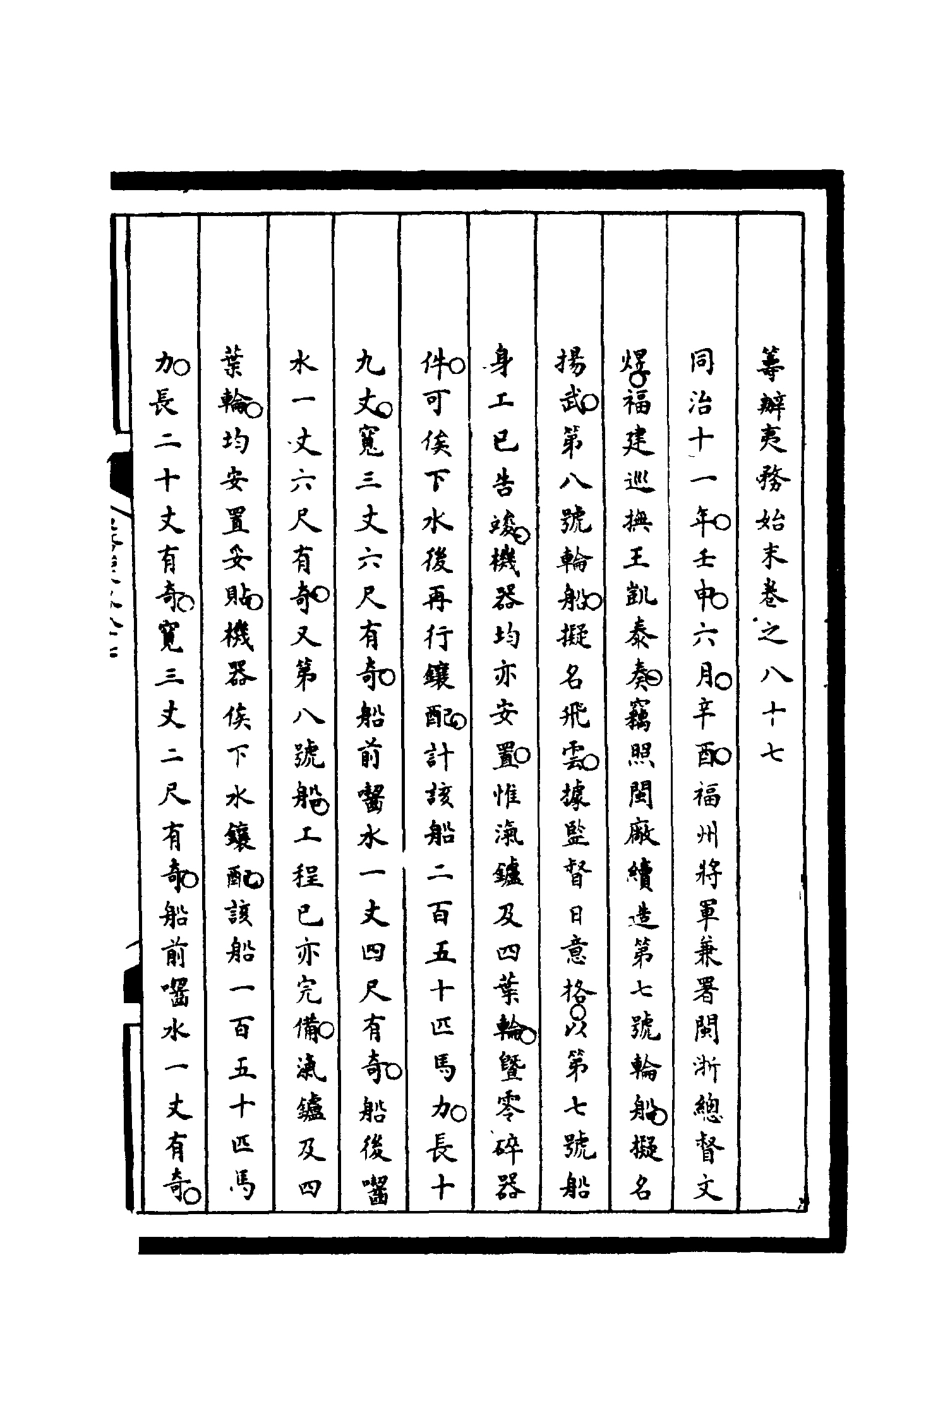 籌辦夷務始末卷之八十七
同治十一年○壬申○六月○辛酉○福州將軍兼署閩浙總督文
煜○福建巡撫王凱泰奏○竊照閩廠續造第七號輪船○擬名
揚武○第八號輪船○擬名飛雲○據監督日意格○以第七號船
身工已告竣○機器均亦安置○惟瀛鑪及四葉輪○暨零碎器
件○可俟下水後再行鑲配○計該船二百五十匹馬力○長十
九丈○寬三丈六尺有奇○船前嚙水一丈四尺有奇○船後嚙
水一丈六尺有奇○又第八號船○工程已亦完備○瀛鑪及四
葉輪○均安置妥貼○機器俟下水鑲配○該船一百五十匹馬
力○長二十丈有奇○寬三丈二尺有奇○船前嚙水一丈有奇○